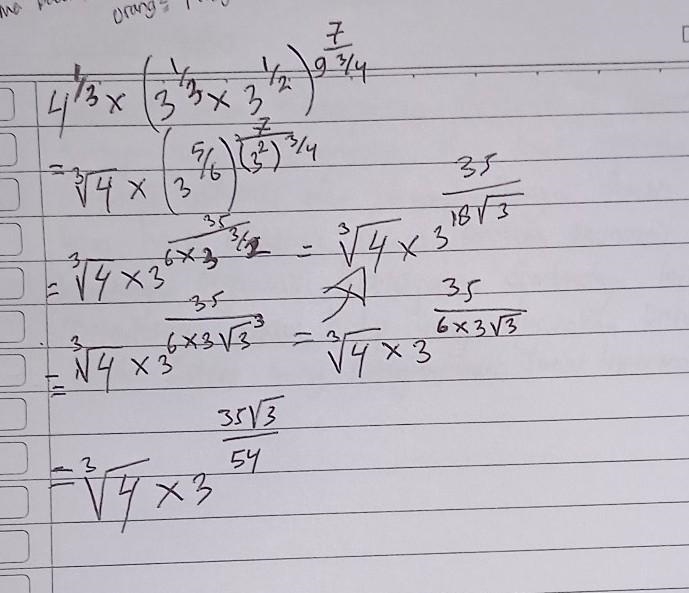 orang =
4^{1/3} × (3^{1/3} × 3^{1/2})^{\frac{7}{9^{3/4}}}
= ∛4 × (3^{5/6})^{\frac{7}{(3^2)^{3/4}}}
= ∛4 × 3^{\frac{35}{6×3^{3/2}}} = ∛4 × 3^{\frac{35}{18√3}}
= ∛4 × 3^{\frac{35}{6×3√3^3}} = ∛4 × 3^{\frac{35}{6×3√3}}
= ∛4 × 3^{\frac{35√3}{54}}